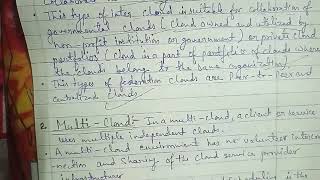 This type of inter cloud is suitable for collaboration of
governmental clouds (Cloud owned and utilized by
non-profit institution or government) or private cloud
portfolio (Cloud is a part of portfolio of clouds where
the clouds belong to the same organization).
This types of federation clouds are Peer-to-Peer and
centralized clouds.
2. Multi-Cloud:- In a multi-cloud, a client or service
uses multiple independent clouds.
A multi-cloud environment has no volunteer interconn
-ection and sharing of the cloud service provider
infrastructure
is the